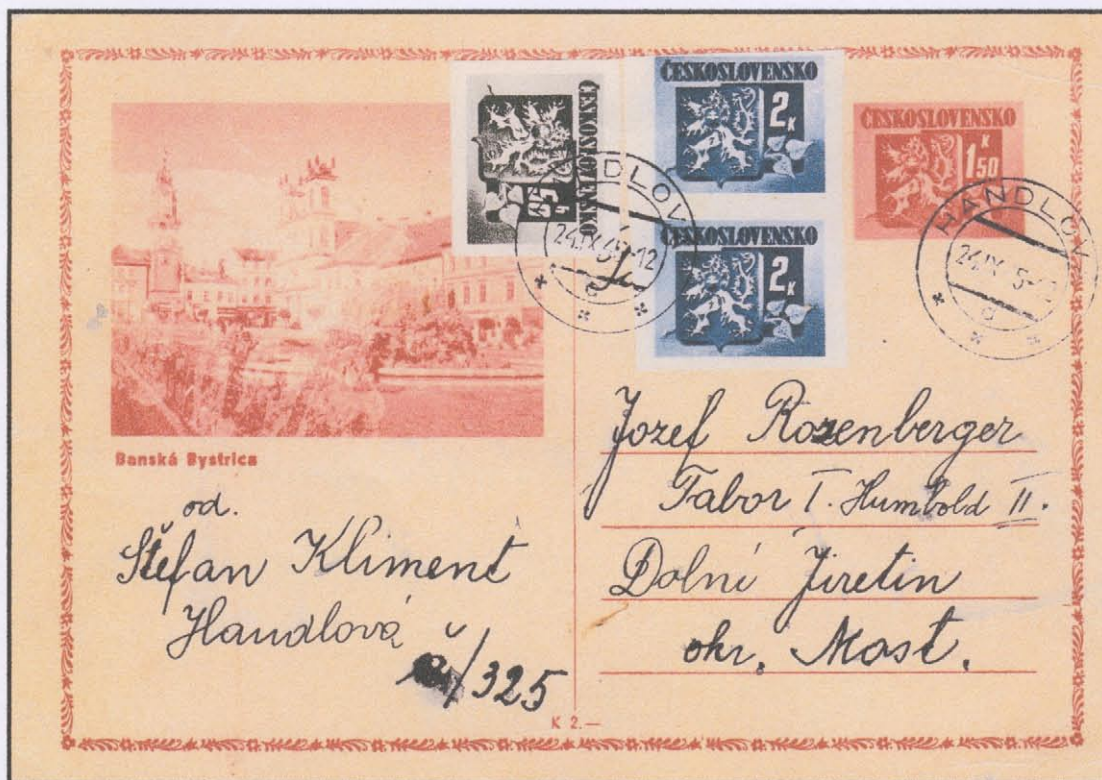 ČESKOSLOVENSKO
ČESKOSLOVENSKO
2 K
ČESKOSLOVENSKO
2 K
ČESKOSLOVENSKO
1 50 K
HANDLOV
24.IX 12
HANDLOV
24.IX
Banská Bystrica
od.
Štefan Kliment
Handlová
č/325
Jozef Rozenberger
Tabor I. Humbold II.
Dolní Jiretin
okr. Most.
K 2.—